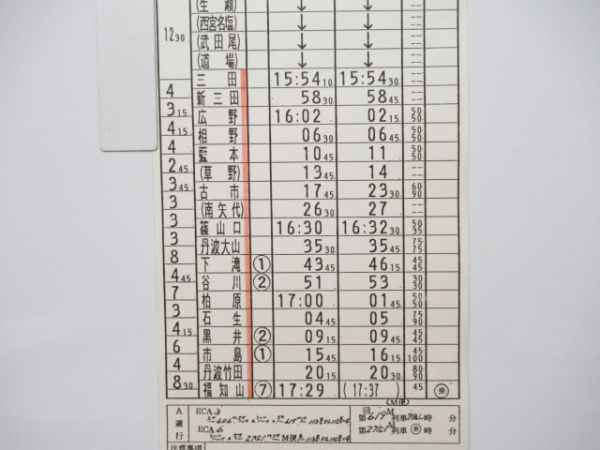 (生瀬) ↓ ↓ --
12 30 (西宮名塩) ↓ ↓ --
(武田尾) ↓ ↓ --
(道場) ↓ ↓ --
三田 15:54 10 15:54 30 --
4 新三田 58 30 58 45 --
3 15 広野 16:02 02 15 50 50
4 15 相野 06 30 06 45 50 50
4 藍本 10 45 11 50 50
2 45 (草野) 13 45 14 --
3 45 古市 17 45 23 30 60 90
3 (南矢代) 26 30 27 --
3 篠山口 16:30 16:32 30 50 35
3 丹波大山 35 30 35 45 75 75
8 下滝 ① 43 45 46 15 45 45
4 45 谷川 ② 51 53 30 30
7 柏原 17:00 01 45 50 50
3 石生 04 45 05 75 90
4 15 黒井 ② 09 15 09 45 45 45
6 市島 ① 15 45 16 15 45 100
4 丹波竹田 20 15 20 30 80 90
8 30 福知山 ⑦ 17:29 (17:37) 45 ㊍
(M便)
A ECA 3
第619M列車 時 分
運行 ECA 6
2751M
第2751M列車 時 分
注意事項